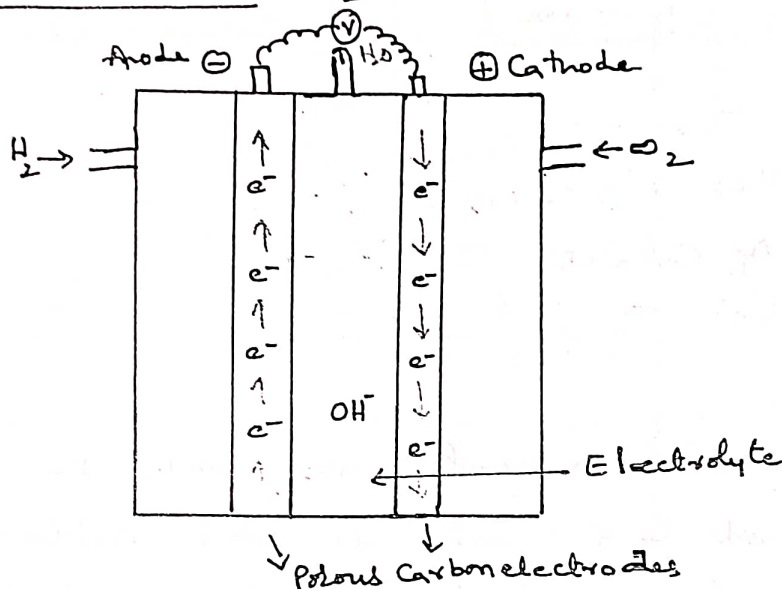 V
Anode ⊖
H₂O
⊕ Cathode
H₂ →
← O₂
e⁻
e⁻
e⁻
e⁻
e⁻
e⁻
e⁻
e⁻
OH⁻
Electrolyte
Porous Carbon electrodes